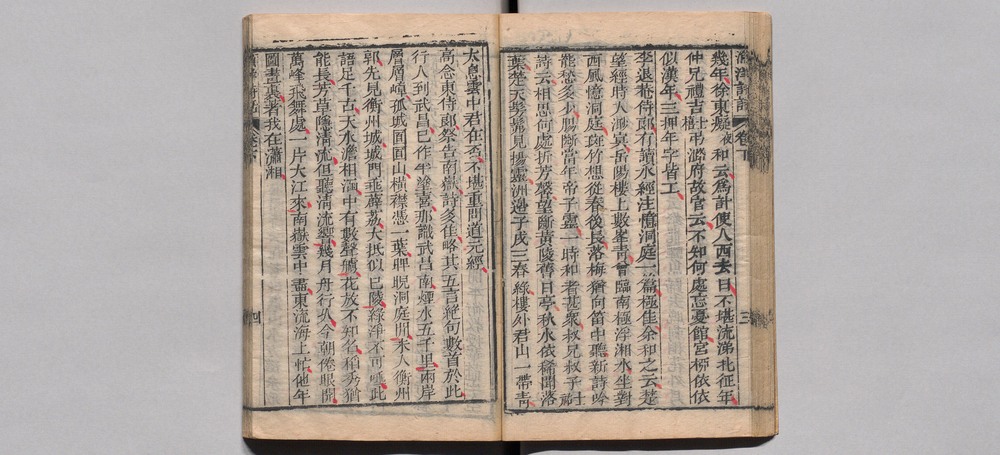 漁洋詩話 卷下 三
幾年徐東癡夜和云為計使人西去日不堪流涕札征年
仲兄禮吉士祜弔潞府故宮云不知何處忘憂館宮柳依依
似漢年三押年字皆工
李退菴侍郎有讀水經注憶洞庭一篇極佳余和之云楚
望經時入渺冥岳陽樓上數峯青曾臨南極浮湘水坐對
西風憶洞庭斑竹想從春後長落梅猶向笛中聽新詩吟
罷愁多少腸斷當年帝子靈一時和者甚衆叔兄叔子士祜
詩云相思何處折芳馨望斷黃陵舊日亭秋水依稀聞落
葉楚天髣髴見揚靈洲邊子戍三春綠樓外君山一帶青
太息雲中君在否不堪重問道元經
高念東侍郎祭告南嶽詩多佳略其五言絕句數首於此
行人到武昌已作半塗喜那識武昌南煙水五千里兩岸
層層嶂孤城面面山橫襟憑一葉睥睨洞庭間未入衡州
郭先見衡州城城門垂薜荔大抵似巴陵綠淨不可唾此
語足千古天水澹相涵中有數聲艣花放不知名稻秀猶
能長芳草隱清流但聽清流響幾月舟行久今朝倦眼開
萬峰飛舞處一片大江來南嶽雲中盡東流海上忙他年
圖畫裏着我在瀟湘
四